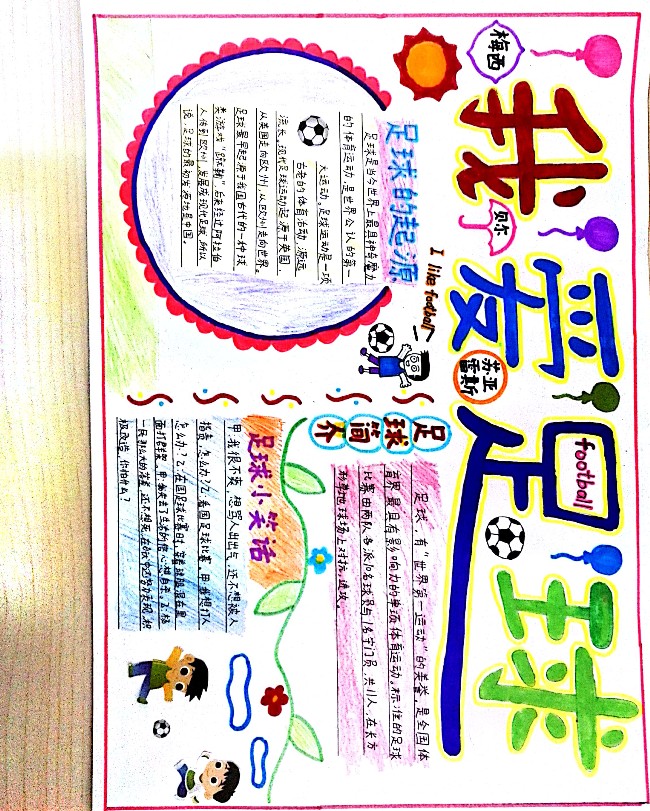 我爱足球
football
梅西
贝尔
苏亚
雷斯
I like football
足球的起源
足球是当今世界上最具神奇魔力
的体育运动,是世界公认的第一
大运动。足球运动是一项
古老的体育活动,源远
流长,现代足球运动起源于英国,
从英国走向欧州,从欧州走向世界。
足球最早起源于我国古代的一种球
类游戏“蹴鞠”后来经过阿拉伯
人传到欧州,发展成现代足球,所以
说,足球的最初发源地是中国。
足球简介
足球,有“世界第一运动”的美誉,是全国体
育界最具有影响力的单项体育运动。标准的足球
比赛由两队各派10名球员与1名守门员,共11人,在长方
形草地球场上对抗,进攻。
足球小笑话
甲:我很不爽,想骂人出出气,还不想被人
指责,怎么办?乙:看国足球比赛。甲:我想打人
怎么办?乙:在国足球比赛时,穿着球服混在里